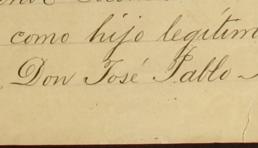 como hijo legítim
Don José Pablo